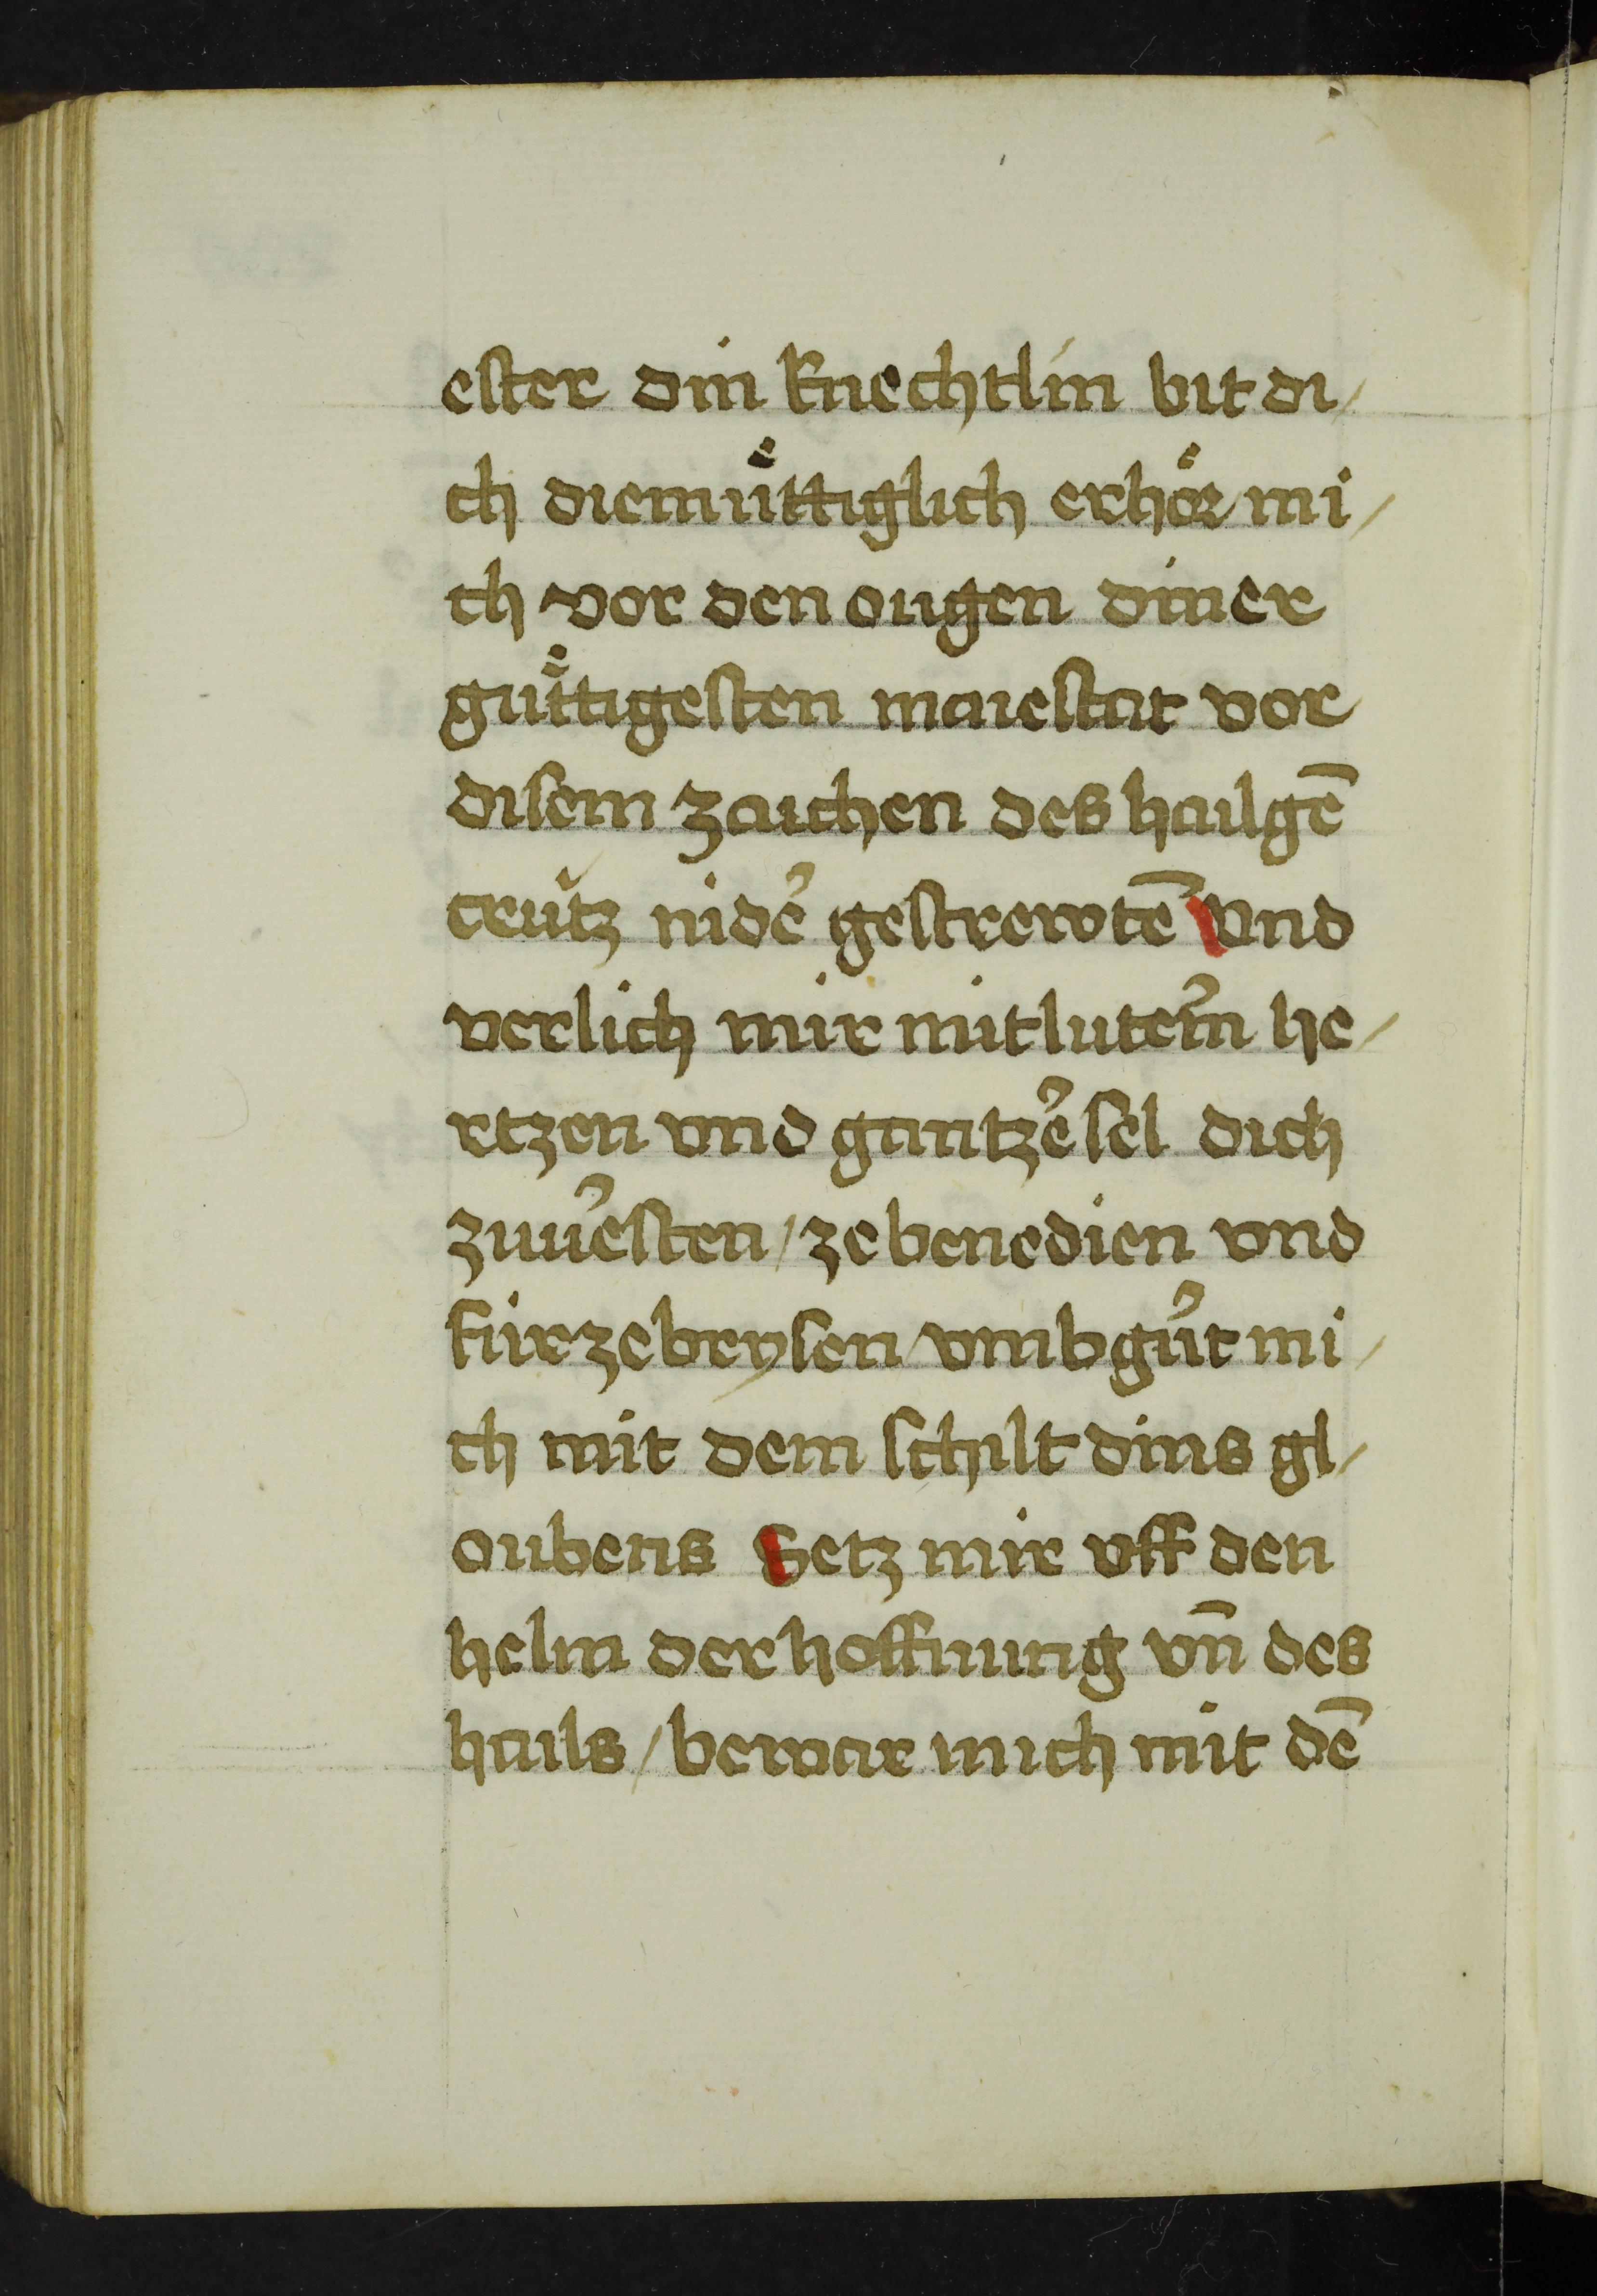 ester din knechtlin bit di/
ch diemuͤttiglich erhoͤr mi/
ch vor den ougen diner
guͤttigesten maiestat vor
disem zaichen des hailgē
crütz nideꝰ gestrewtē Vnd
verlich mir mit luteꝰm he/
rtzen vnd gantzeꝰ sel dich
zuuꝰesten / ze benedien vnd
fürzebrysen / vmbguꝰt mi/
ch mit dem schilt dins gl/
oubens Setz mir vff den
helm der hoffnung vn̄ des
hails / bewar mich mit dē